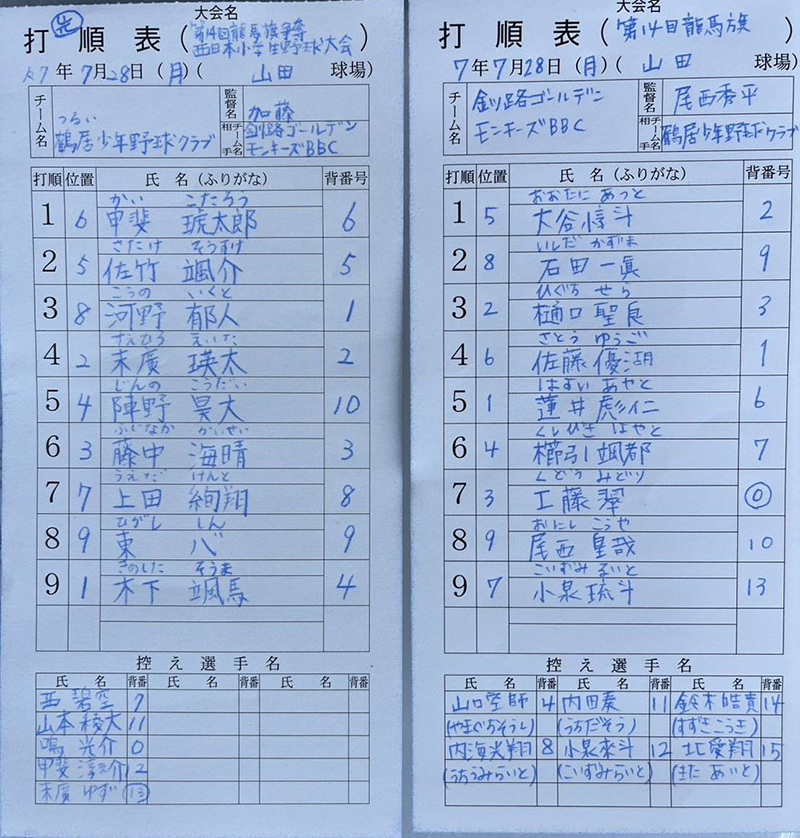 大会名
先
打順表(第14回龍馬旗争奪
西日本小学生野球大会)
R7年7月28日(月)( 山田 球場)
チーム名 つるい
鶴居少年野球クラブ
監督名 加藤
相手チーム名 釧路ゴールデン
モンキーズBBC
打順 位置 氏 名(ふりがな) 背番号
かい こたろう
1 6 甲斐 琥太郎 6
さたけ そうすけ
2 5 佐竹 颯介 5
こうの いくと
3 8 河野 郁人 1
すえひろ えいた
4 2 末廣 瑛太 2
じんの こうだい
5 4 陣野 昊大 10
ふじなか かいせい
6 3 藤中 海晴 3
うえだ けんと
7 7 上田 絢翔 8
ひがし しん
8 9 東 9
きのした そうま
9 1 木下 颯馬 4
控え選手名
氏 名 背番 氏 名 背番 氏 名 背番
西 碧空 7
山本 稜大 11
鳴 光介 0
甲斐 2
末廣 ゆず 13
大会名
打順表(第14回龍馬旗)
7年7月28日(月)( 山田 球場)
チーム名 釧路ゴールデン
モンキーズBBC
監督名 尾西秀平
相手チーム名 鶴居少年野球クラブ
打順 位置 氏 名(ふりがな) 背番号
おおたに あつと
1 5 大谷惇斗 2
いしだ かずま
2 8 石田一眞 9
ひぐち せら
3 2 樋口聖良 3
さとう ゆうご
4 6 佐藤優湖 1
はすい あやと
5 1 蓮井彪仁 6
くしひき はやと
6 4 櫛引颯都 7
くどう みどり
7 3 工藤翠 0
おにし こうや
8 9 尾西皇哉 10
こいずみ るいと
9 7 小泉琉斗 13
控え選手名
氏 名 背番 氏 名 背番 氏 名 背番
山口空師 4 内田奏 11 鈴木皓貴 14
(やまぐちそうし) (うちだそう) (すずきこうき)
内海光翔 8 小泉來斗 12 北愛翔 15
(うちうみらいと) (こいずみらいと) (きた あいと)